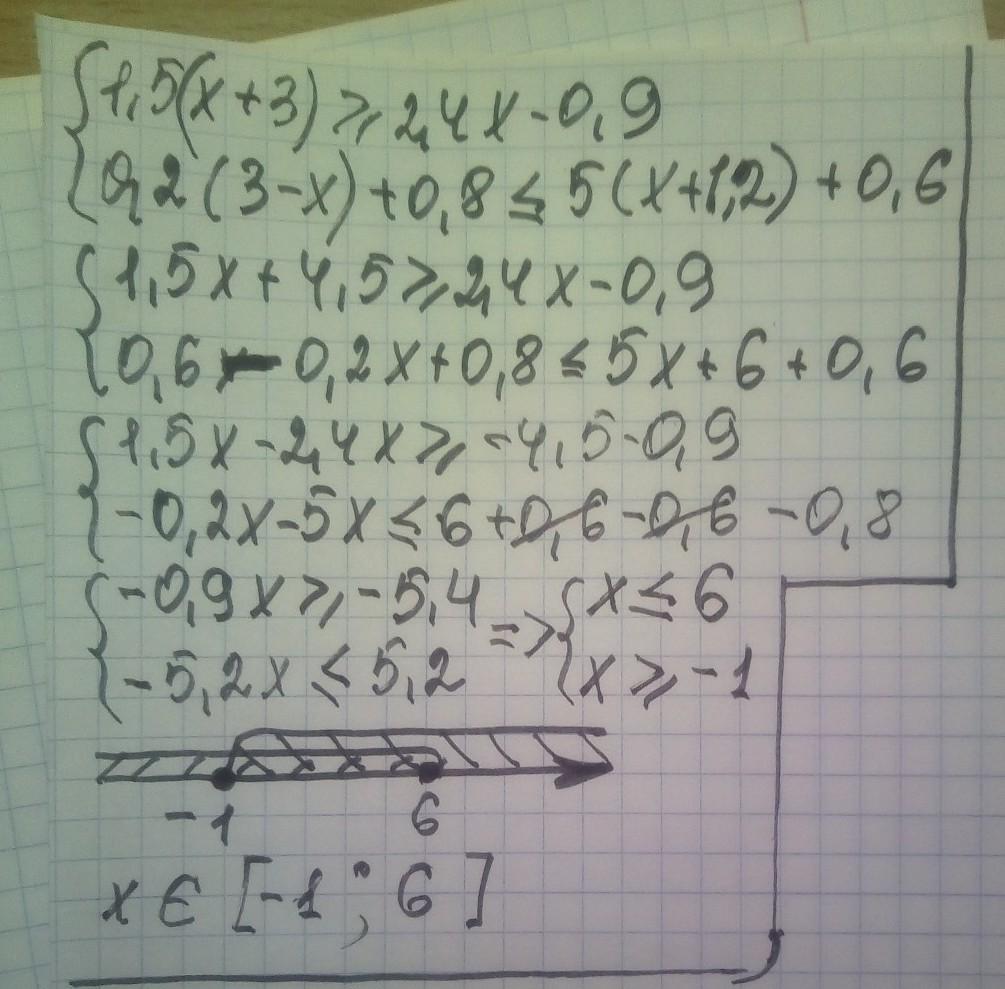 1,5(x+3)⩾2,4x-0,9
0,2(3-x)+0,8≤5(x+1,2)+0,6
1,5x+4,5⩾2,4x-0,9
0,6-0,2x+0,8≤5x+6+0,6
1,5x-2,4x⩾-4,5-0,9
-0,2x-5x≤6+0,6-0,6-0,8
-0,9x⩾-5,4 => x≤6
-5,2x≤5,2 x⩾-1
-1 6
x∈[-1;6]